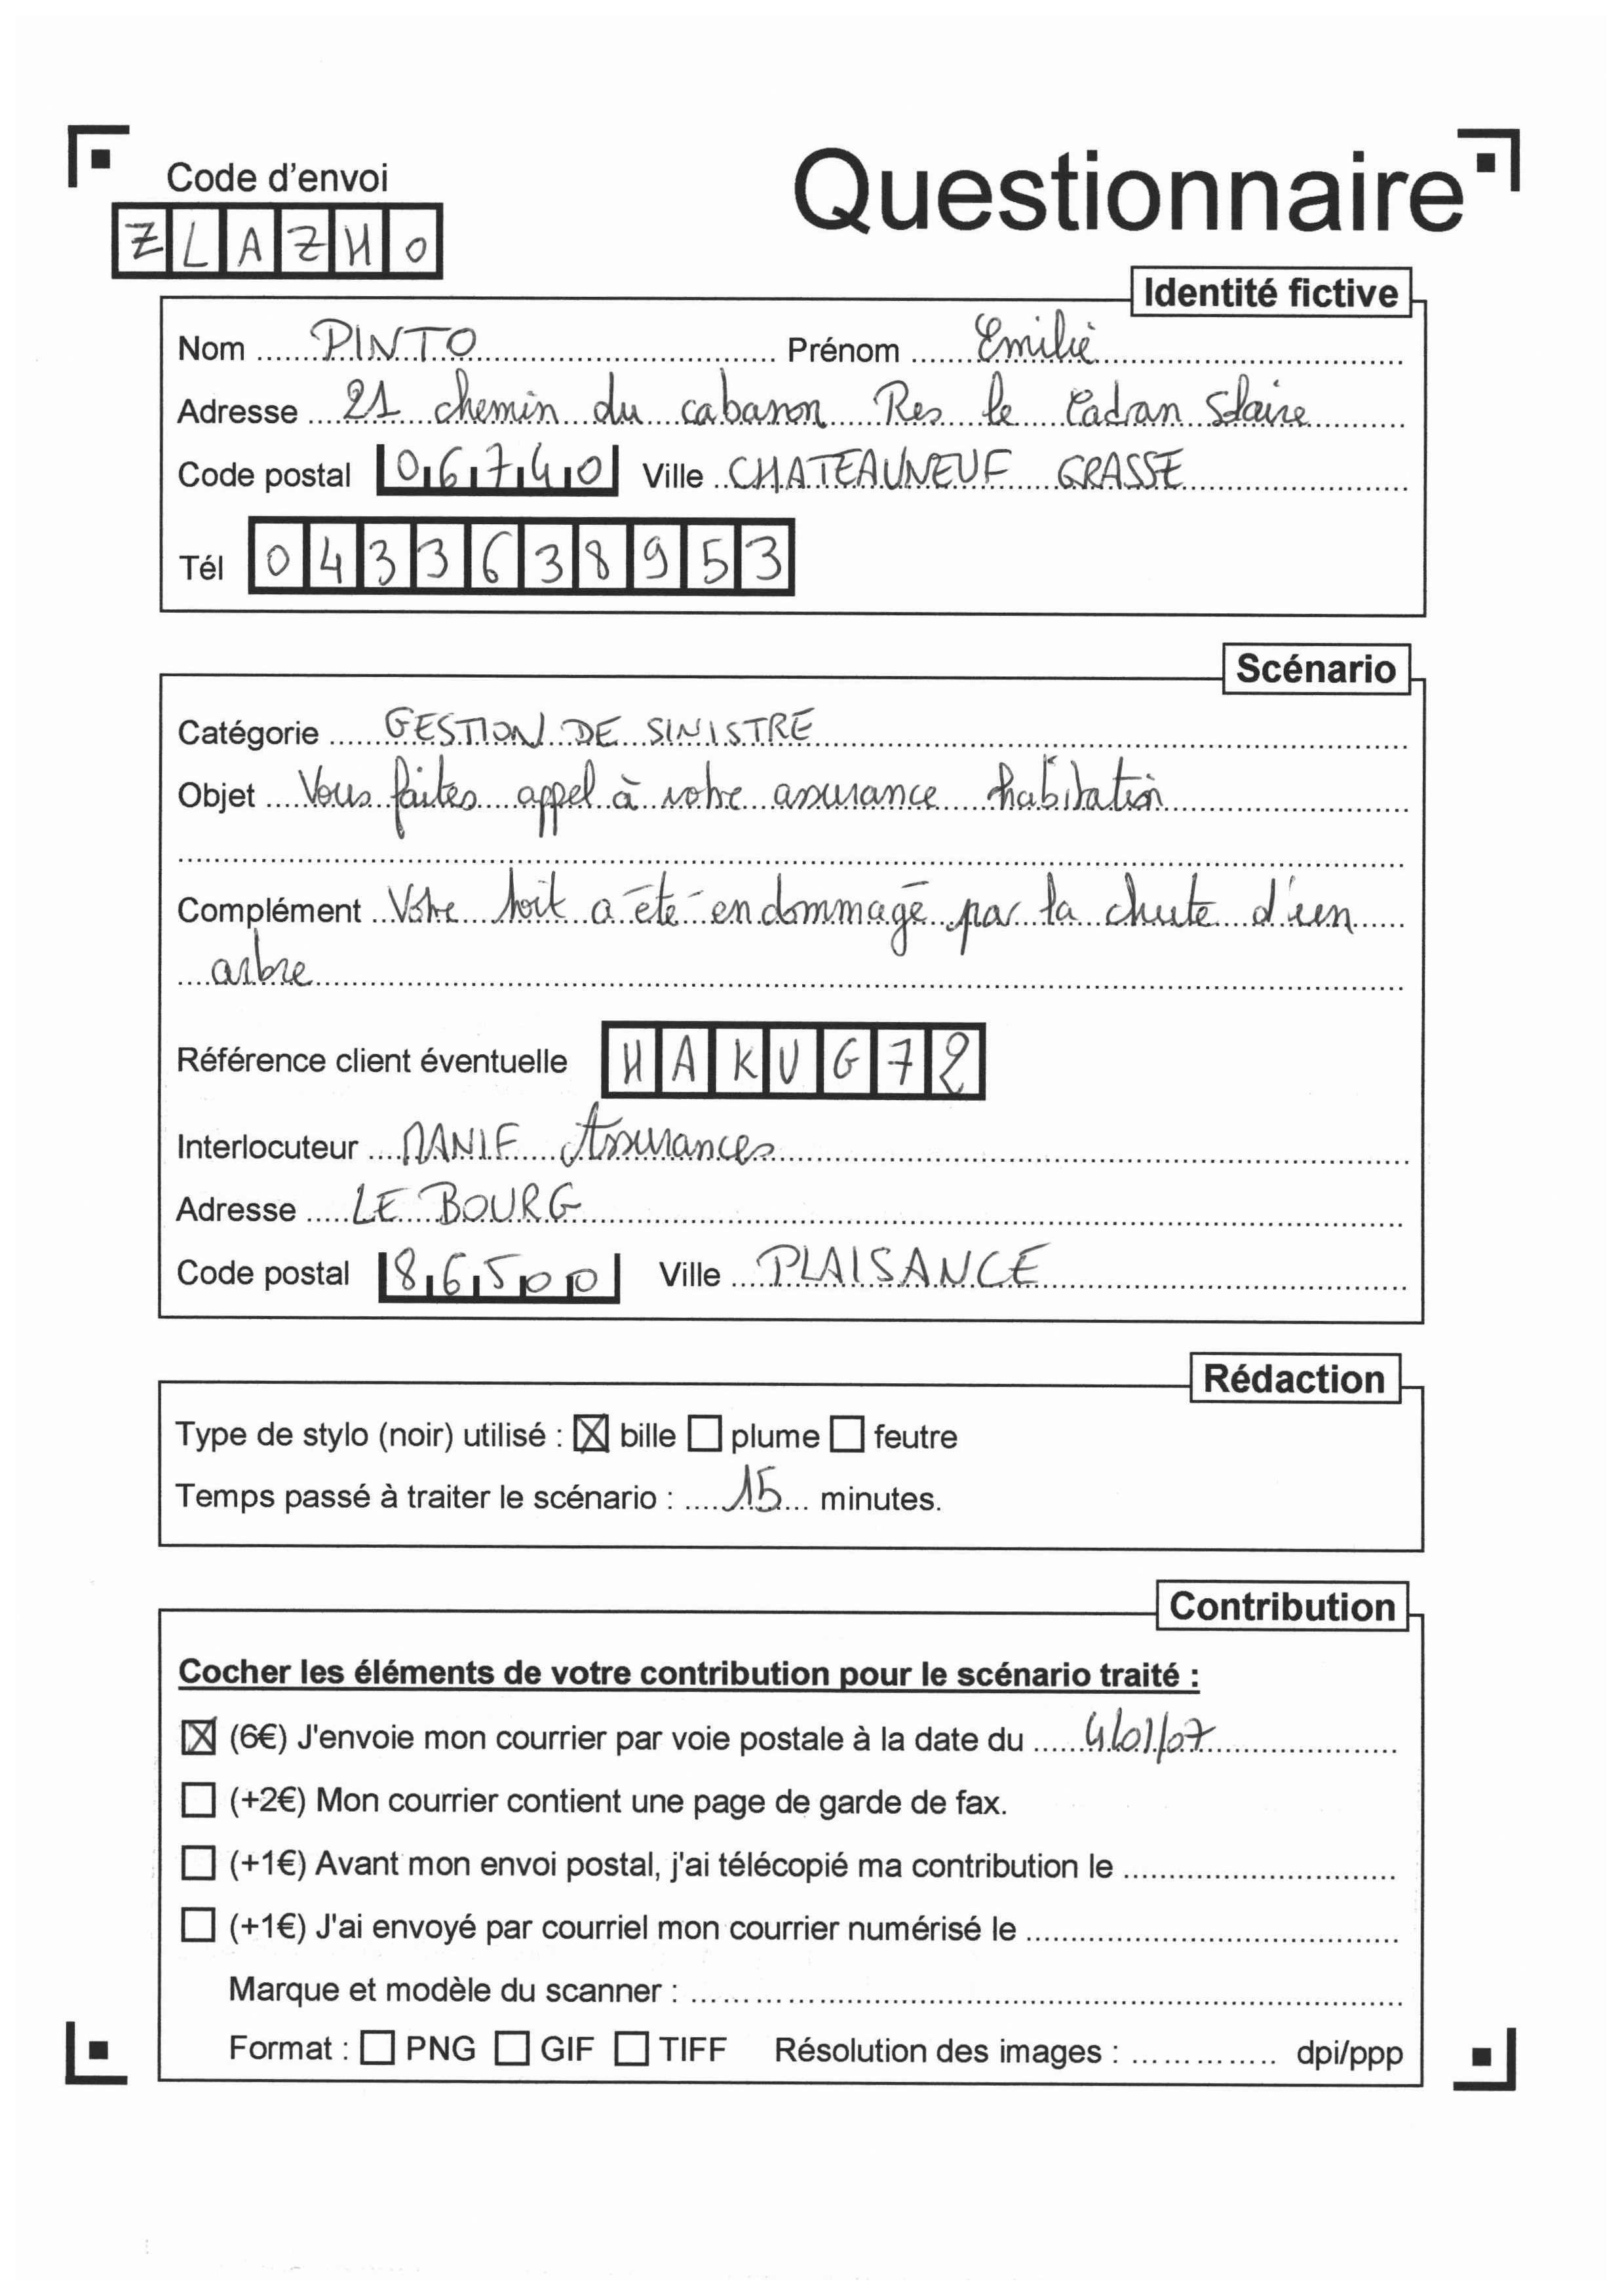 Code d'envoi
Questionnaire
ZLAZHO
Identité fictive
Nom PINTO Prénom Emilie
Adresse 21 chemin du cabanon Res le Cadran Solaire
Code postal 06740 Ville CHATEAUNEUF GRASSE
Tél 0433638953
Scénario
Catégorie GESTION DE SINISTRE
Objet Vous faites appel à votre assurance habitation
Complément Votre toit a été endommagé par la chute d'un
arbre
Référence client éventuelle HAKUG72
Interlocuteur MANIF Assurances
Adresse LE BOURG
Code postal 86500 Ville PLAISANCE
Rédaction
Type de stylo (noir) utilisé : ☒ bille ☐ plume ☐ feutre
Temps passé à traiter le scénario : 15 minutes.
Contribution
Cocher les éléments de votre contribution pour le scénario traité :
☒ (6€) J'envoie mon courrier par voie postale à la date du 4/01/07
☐ (+2€) Mon courrier contient une page de garde de fax.
☐ (+1€) Avant mon envoi postal, j'ai télécopié ma contribution le
☐ (+1€) J'ai envoyé par courriel mon courrier numérisé le
Marque et modèle du scanner :
Format : ☐ PNG ☐ GIF ☐ TIFF Résolution des images : dpi/ppp